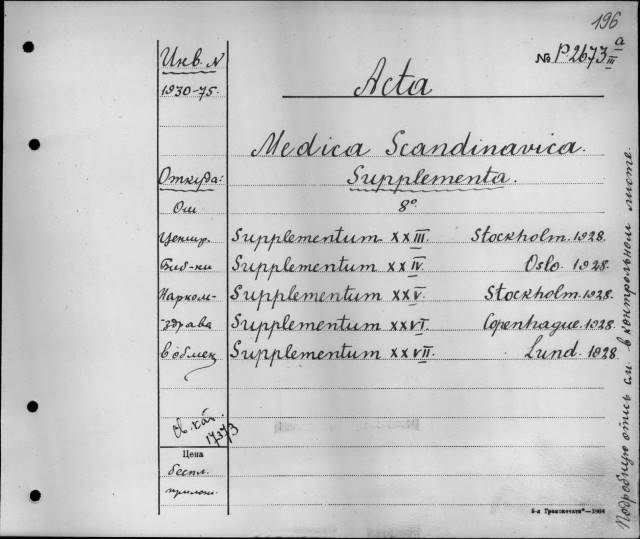 196
№ P2673 a/III
Инв. N
1930-75.
Acta
Medica Scandinavica.
Откуда:
Supplementa.
От
8º
Центр.
Supplementum XXIII. Stockholm. 1928.
Биб-ки
Supplementum XXIV. Oslo. 1928.
Нарком-
Supplementum XXV. Stockholm. 1928.
-здрава
Supplementum XXVI. Copenhague. 1928.
в обмен
Supplementum XXVII. Lund. 1928.
17373
Цена
беспл.
прилож.
Подробную опись см. в контрольном листе.